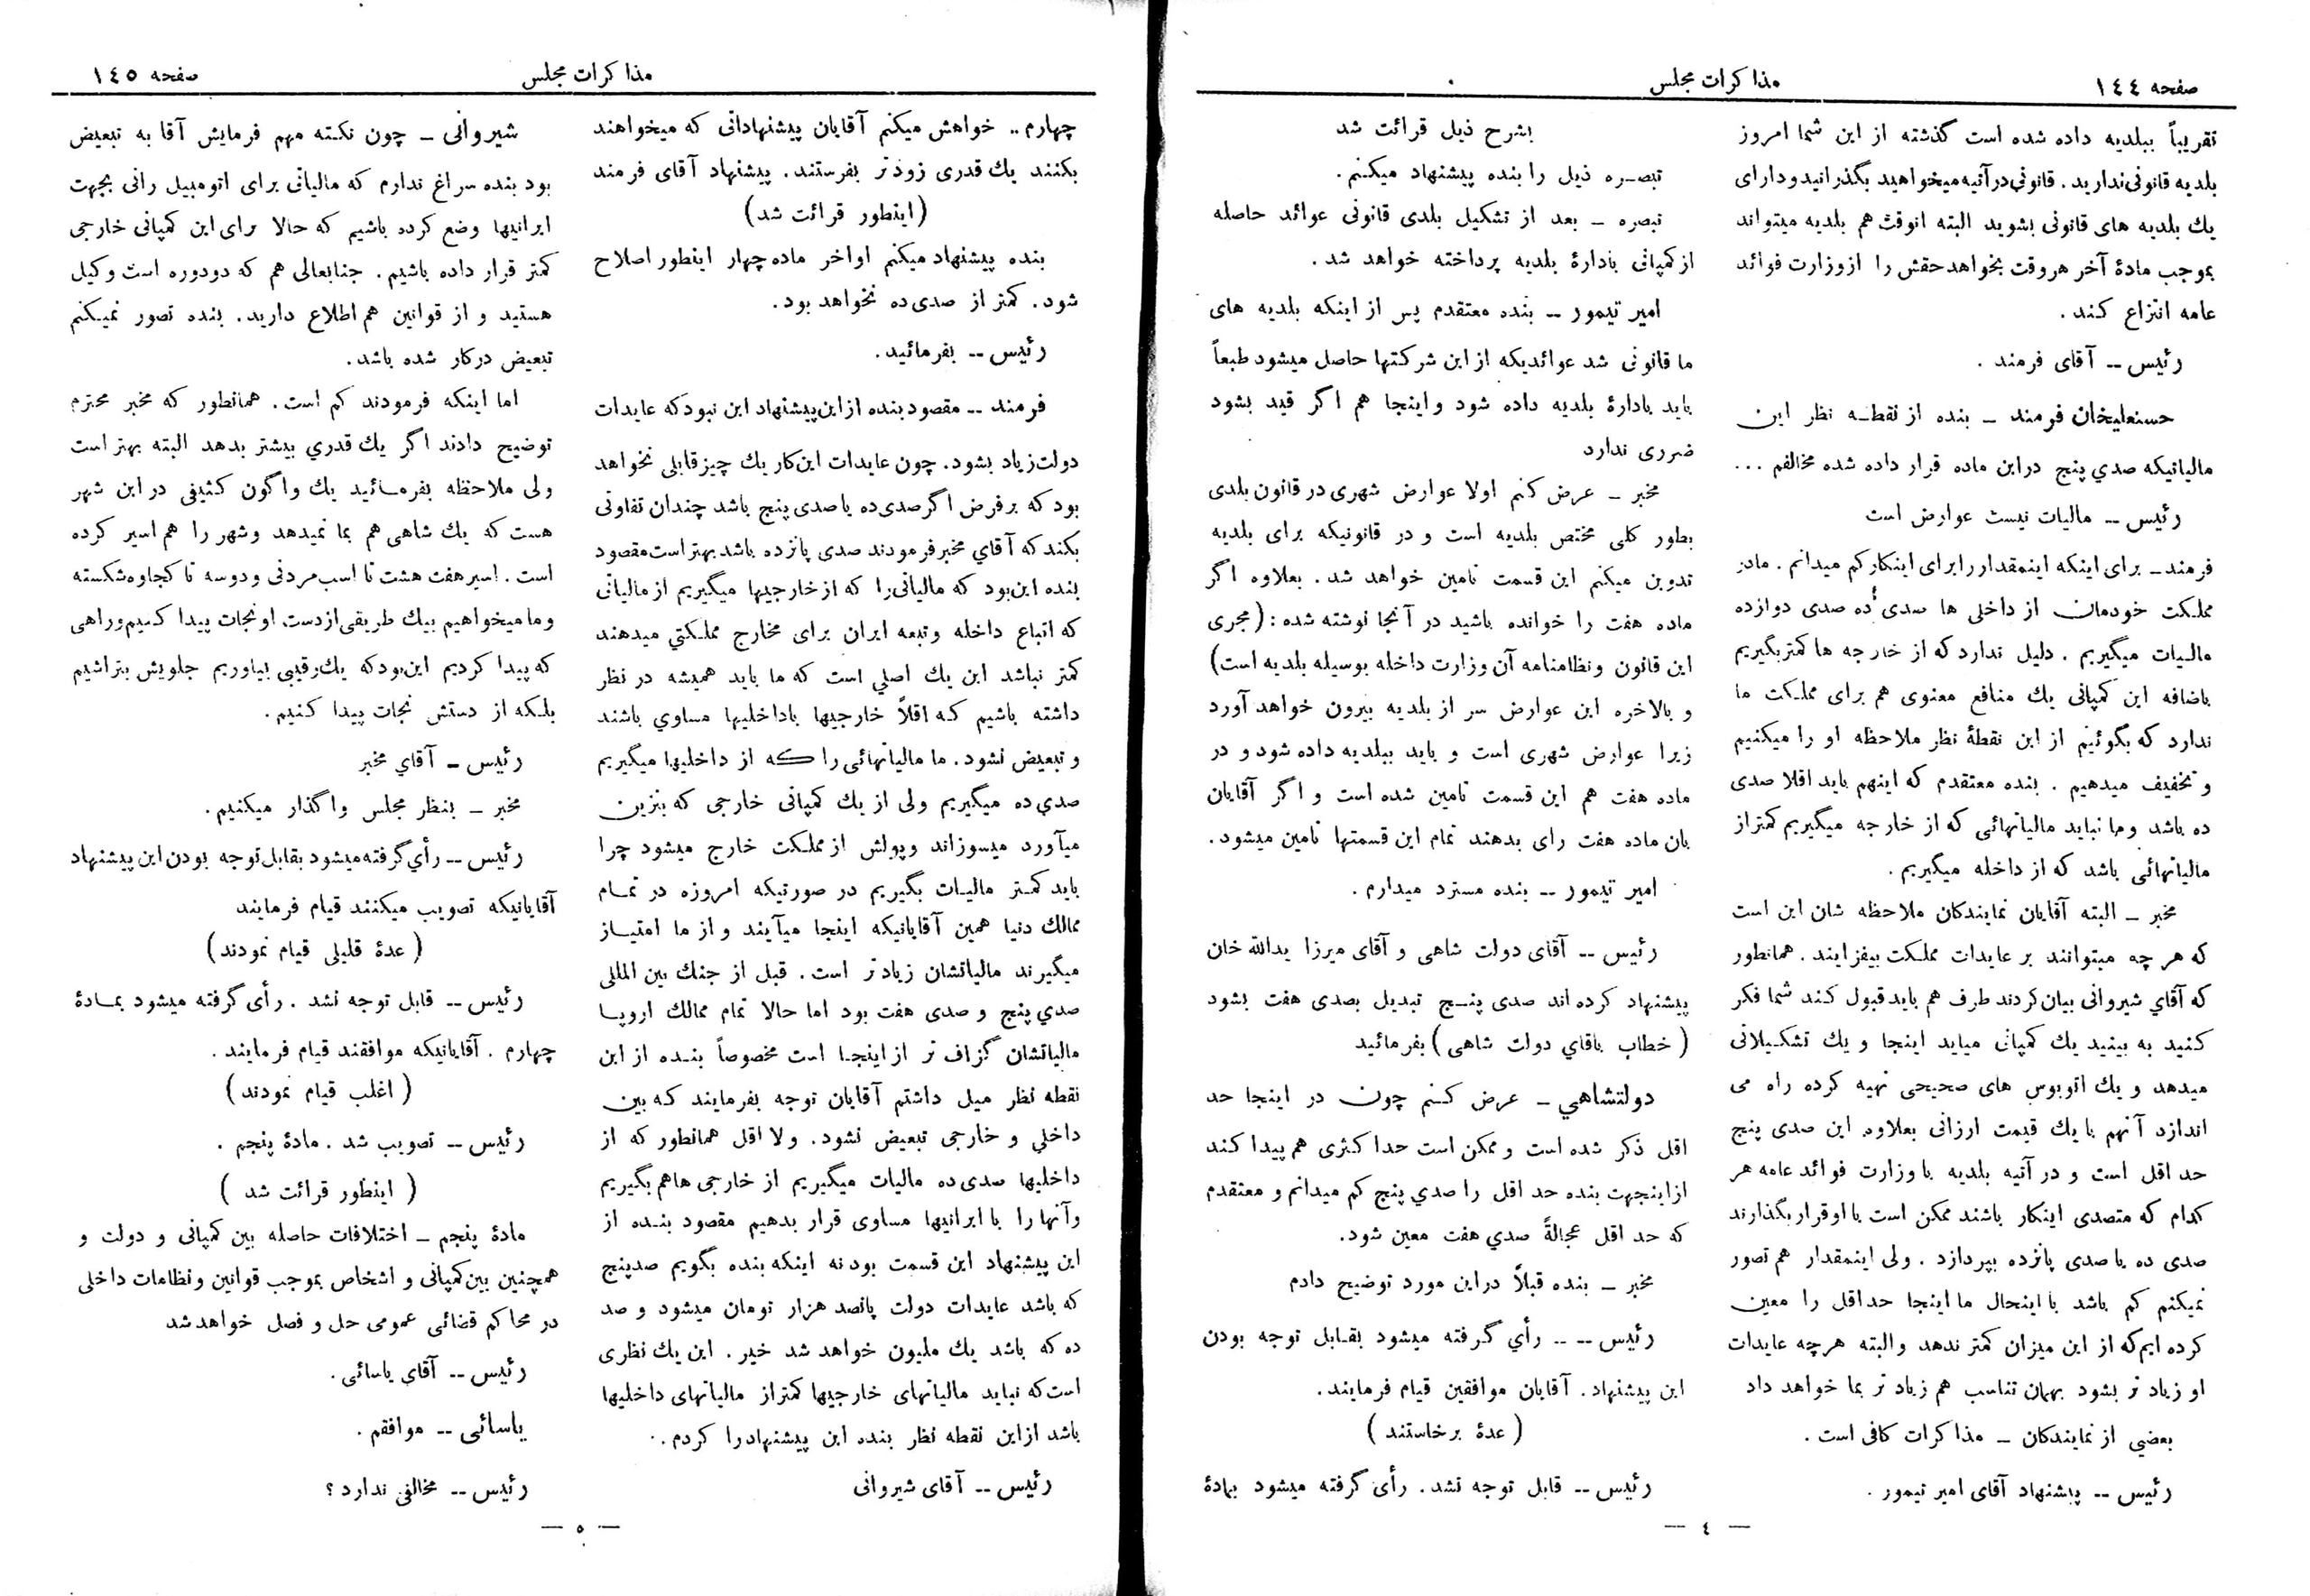 صفحه ١٤٤
مذاکرات مجلس
تقریباً ببلدیه داده شده است گذشته از این شما امروز
بلدیه قانونی ندارید. قانونی در آتیه میخواهید بگذرانید و دارای
یك بلدیه های قانونی بشوید البته انوقت هم بلدیه میتواند
بموجب مادهٔ آخر هروقت بخواهد حقش را ازوزارت فوائد
عامه انتزاع کند .
رئیس -- آقای فرمند .
حسنعلیخان فرمند - بنده از نقطه نظر این
مالیاتیکه صدی پنج دراین ماده قرار داده شده مخالفم ...
رئیس -- مالیات نیست عوارض است
فرمند - برای اینکه اینمقدار را برای اینکار کم میدانم . مادر
مملکت خودمان از داخلی ها صدی ده صدی دوازده
مالیات میگیریم . دلیل ندارد که از خارجه ها کمتر بگیریم
باضافه این کمپانی یك منافع معنوی هم برای مملکت ما
ندارد که بگوئیم از این نقطهٔ نظر ملاحظه او را میکنیم
و تخفیف میدهیم . بنده معتقدم که اینهم باید اقلا صدی
ده باشد وما نباید مالیاتهائی که از خارجه میگیریم کمتر از
مالیاتهائی باشد که از داخله میگیریم .
مخبر - البته آقایان نمایندکان ملاحظه شان این است
که هر چه میتوانند بر عایدات مملکت بیفزایند . همانطور
که آقای شیروانی بیان کردند طرف هم باید قبول کند شما فکر
کنید به بینید یك کمپانی میاید اینجا و یك تشکیلاتی
میدهد و یك اتوبوس های صحیحی تهیه کرده راه می
اندازد آنهم با یك قیمت ارزانی بعلاوه این صدی پنج
حد اقل است و در آتیه بلدیه یا وزارت فوائد عامه هر
کدام که متصدی اینکار باشند ممکن است با او قرار بگذارند
صدی ده یا صدی پانزده بپردازد . ولی اینمقدار هم تصور
نمیکنم کم باشد با اینحال ما اینجا حداقل را معین
کرده ایم که از این میزان کمتر ندهد والبته هرچه عایدات
او زیاد تر بشود بهمان تناسب هم زیاد تر بما خواهد داد
بعضی از نمایندکان - مذاکرات کافی است .
رئیس -- پیشنهاد آقای امیر تیمور .
بشرح ذیل قرائت شد
تبصره ذیل را بنده پیشنهاد میکنم .
تبصره - بعد از تشکیل بلدی قانونی عوائد حاصله
از کمپانی بادارهٔ بلدیه پرداخته خواهد شد .
امیر تیمور -- بنده معتقدم پس از اینکه بلدیه های
ما قانونی شد عوائدیکه از این شرکتها حاصل میشود طبعاً
باید بادارهٔ بلدیه داده شود و اینجا هم اگر قید بشود
ضرری ندارد
مخبر - عرض کنم اولا عوارض شهری در قانون بلدی
بطور کلی مختص بلدیه است و در قانونیکه برای بلدیه
تدوین میکنم این قسمت تامین خواهد شد . بعلاوه اگر
ماده هفت را خوانده باشید در آنجا نوشته شده : (مجری
این قانون و نظامنامه آن وزارت داخله بوسیله بلدیه است)
و بالاخره این عوارض سر از بلدیه بیرون خواهد آورد
زیرا عوارض شهری است و باید ببلدیه داده شود و در
ماده هفت هم این قسمت تامین شده است و اگر آقایان
بان ماده هفت رای بدهند تمام این قسمتها تامین میشود .
امیر تیمور -- بنده مسترد میدارم .
رئیس -- آقای دولت شاهی و آقای میرزا یدالله خان
پیشنهاد کرده اند صدی پنج تبدیل بصدی هفت بشود
( خطاب باقای دولت شاهی ) بفرمائید
دولتشاهی - عرض کنم چون در اینجا حد
اقل ذکر شده است و ممکن است حدا کثری هم پیدا کند
از اینجهت بنده حد اقل را صدی پنج کم میدانم و معتقدم
که حد اقل عجالةً صدی هفت معین شود .
مخبر - بنده قبلاً دراین مورد توضیح دادم
رئیس -- -- رأی گرفته میشود بقابل توجه بودن
این پیشنهاد . آقایان موافقین قیام فرمایند .
( عدهٔ برخاستند )
رئیس -- قابل توجه نشد . رأی گرفته میشود بمادهٔ
- ٤ -
مذاکرات مجلس
صفحه ١٤٥
چهارم .. خواهش میکنم آقایان پیشنهاداتی که میخواهند
بکنند یك قدری زودتر بفرستند . پیشنهاد آقای فرمند
(اینطور قرائت شد)
بنده پیشنهاد میکنم اواخر ماده چهار اینطور اصلاح
شود . کمتر از صدی ده نخواهد بود .
رئیس -- بفرمائید .
فرمند -- مقصود بنده از این پیشنهاد این نبود که عایدات
دولت زیاد بشود . چون عایدات این کار یك چیز قابلی نخواهد
بود که بر فرض اگر صدی ده یا صدی پنج باشد چندان تفاوتی
بکند که آقای مخبر فرمودند صدی پانزده باشد بهتر است مقصود
بنده این بود که مالیاتی را که از خارجیها میگیریم از مالیاتی
که اتباع داخله و تبعه ایران برای مخارج مملکتی میدهند
کمتر نباشد این یك اصلی است که ما باید همیشه در نظر
داشته باشیم که اقلاً خارجیها با داخلیها مساوی باشند
و تبعیض نشود . ما مالیاتهائی را که از داخلیها میگیریم
صدی ده میگیریم ولی از یك کمپانی خارجی که بنزین
میآورد میسوزاند و پولش از مملکت خارج میشود چرا
باید کمتر مالیات بگیریم در صورتیکه امروزه در تمام
ممالك دنیا همین آقایانیکه اینجا میآیند و از ما امتیاز
میگیرند مالیاتشان زیادتر است . قبل از جنك بین المللی
صدی پنج و صدی هفت بود اما حالا تمام ممالك اروپا
مالیاتشان گزاف تر از اینجا است مخصوصاً بنده از این
نقطه نظر میل داشتم آقایان توجه بفرمایند که بین
داخلی و خارجی تبعیض نشود . ولا اقل همانطور که از
داخلیها صدی ده مالیات میگیریم از خارجی ها هم بگیریم
و آنها را با ایرانیها مساوی قرار بدهیم مقصود بنده از
این پیشنهاد این قسمت بود نه اینکه بنده بگویم صدپنج
که باشد عایدات دولت پانصد هزار تومان میشود و صد
ده که باشد یك ملیون خواهد شد خیر . این یك نظری
است که نباید مالیاتهای خارجیها کمتر از مالیاتهای داخلیها
باشد از این نقطه نظر بنده این پیشنهاد را کردم .
رئیس -- آقای شیروانی
شیروانی - چون نکته مهم فرمایش آقا به تبعیض
بود بنده سراغ ندارم که مالیاتی برای اتومبیل رانی بجهت
ایرانیها وضع کرده باشیم که حالا برای این کمپانی خارجی
کمتر قرار داده باشیم . جنابعالی هم که دودوره است وکیل
هستید و از قوانین هم اطلاع دارید . بنده تصور نمیکنم
تبعیض درکار شده باشد .
اما اینکه فرمودند کم است . همانطور که مخبر محترم
توضیح دادند اگر یك قدری بیشتر بدهد البته بهتر است
ولی ملاحظه بفرمائید یك واگون کثیفی در این شهر
هست که یك شاهی هم بما نمیدهد و شهر را هم اسیر کرده
است . اسیر هفت هشت تا اسب مردنی و دوسه تا کجاوه شکسته
و ما میخواهیم بیك طریقی از دست او نجات پیدا کنیم و راهی
که پیدا کردیم این بود که یك رقیبی بیاوریم جلویش بتراشیم
بلکه از دستش نجات پیدا کنیم .
رئیس - آقای مخبر
مخبر - بنظر مجلس واگذار میکنیم .
رئیس -- رأی گرفته میشود بقابل توجه بودن این پیشنهاد
آقایانیکه تصویب میکنند قیام فرمایند
( عدهٔ قلیلی قیام نمودند )
رئیس -- قابل توجه نشد . رأی گرفته میشود بمادهٔ
چهارم . آقایانیکه موافقند قیام فرمایند .
( اغلب قیام نمودند )
رئیس -- تصویب شد . مادهٔ پنجم .
( اینطور قرائت شد )
مادهٔ پنجم - اختلافات حاصله بین کمپانی و دولت و
همچنین بین کمپانی و اشخاص بموجب قوانین و نظامات داخلی
در محاکم قضائی عمومی حل و فصل خواهد شد
رئیس -- آقای یاسائی .
یاسائی -- موافقم .
رئیس -- مخالفی ندارد ؟
- ٥ -